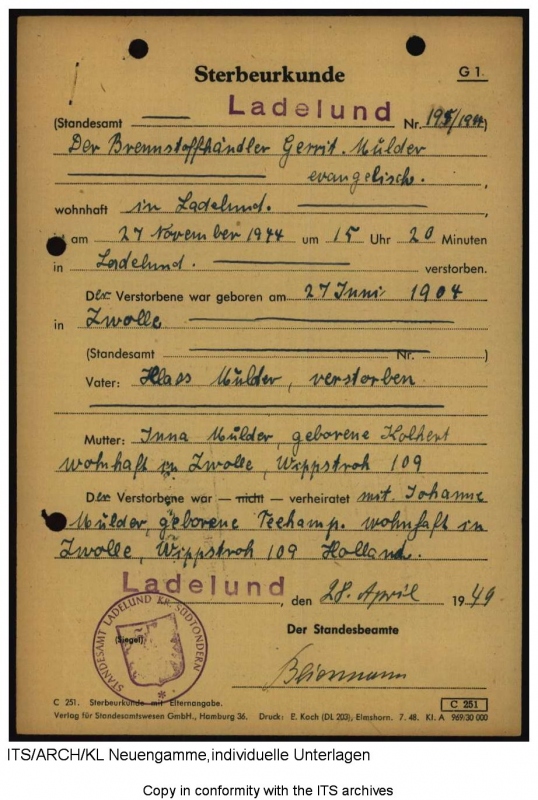 Sterbeurkunde
G 1.
(Standesamt Ladelund Nr. 195/1944)
Der Brennstoffhändler Gerrit Mülder
evangelisch.
wohnhaft in Ladelund.
ist am 27 November 1944 um 15 Uhr 20 Minuten
in Ladelund. verstorben.
Der Verstorbene war geboren am 27 Juni 1904
in Zwolle
(Standesamt Nr. )
Vater: Klass Mülder, verstorben
Mutter: Inna Mülder, geborene Kolhert
wohnhaft in Zwolle, Wippstroh 109
Der Verstorbene war — nicht — verheiratet mit Johanne
Mülder, geborene Teekamp. wohnhaft in
Zwolle, Wippstroh 109 Holland.
Ladelund, den 28. April 1949
STANDESAMT LADELUND KR. SÜDTONDERN
(Siegel)
Der Standesbeamte
C 251. Sterbeurkunde mit Elternangabe.
C 251
Verlag für Standesamtswesen GmbH., Hamburg 36. Druck: E. Koch (DL 203), Elmshorn. 7. 48. Kl. A 969/30 000
ITS/ARCH/KL Neuengamme,individuelle Unterlagen
Copy in conformity with the ITS archives